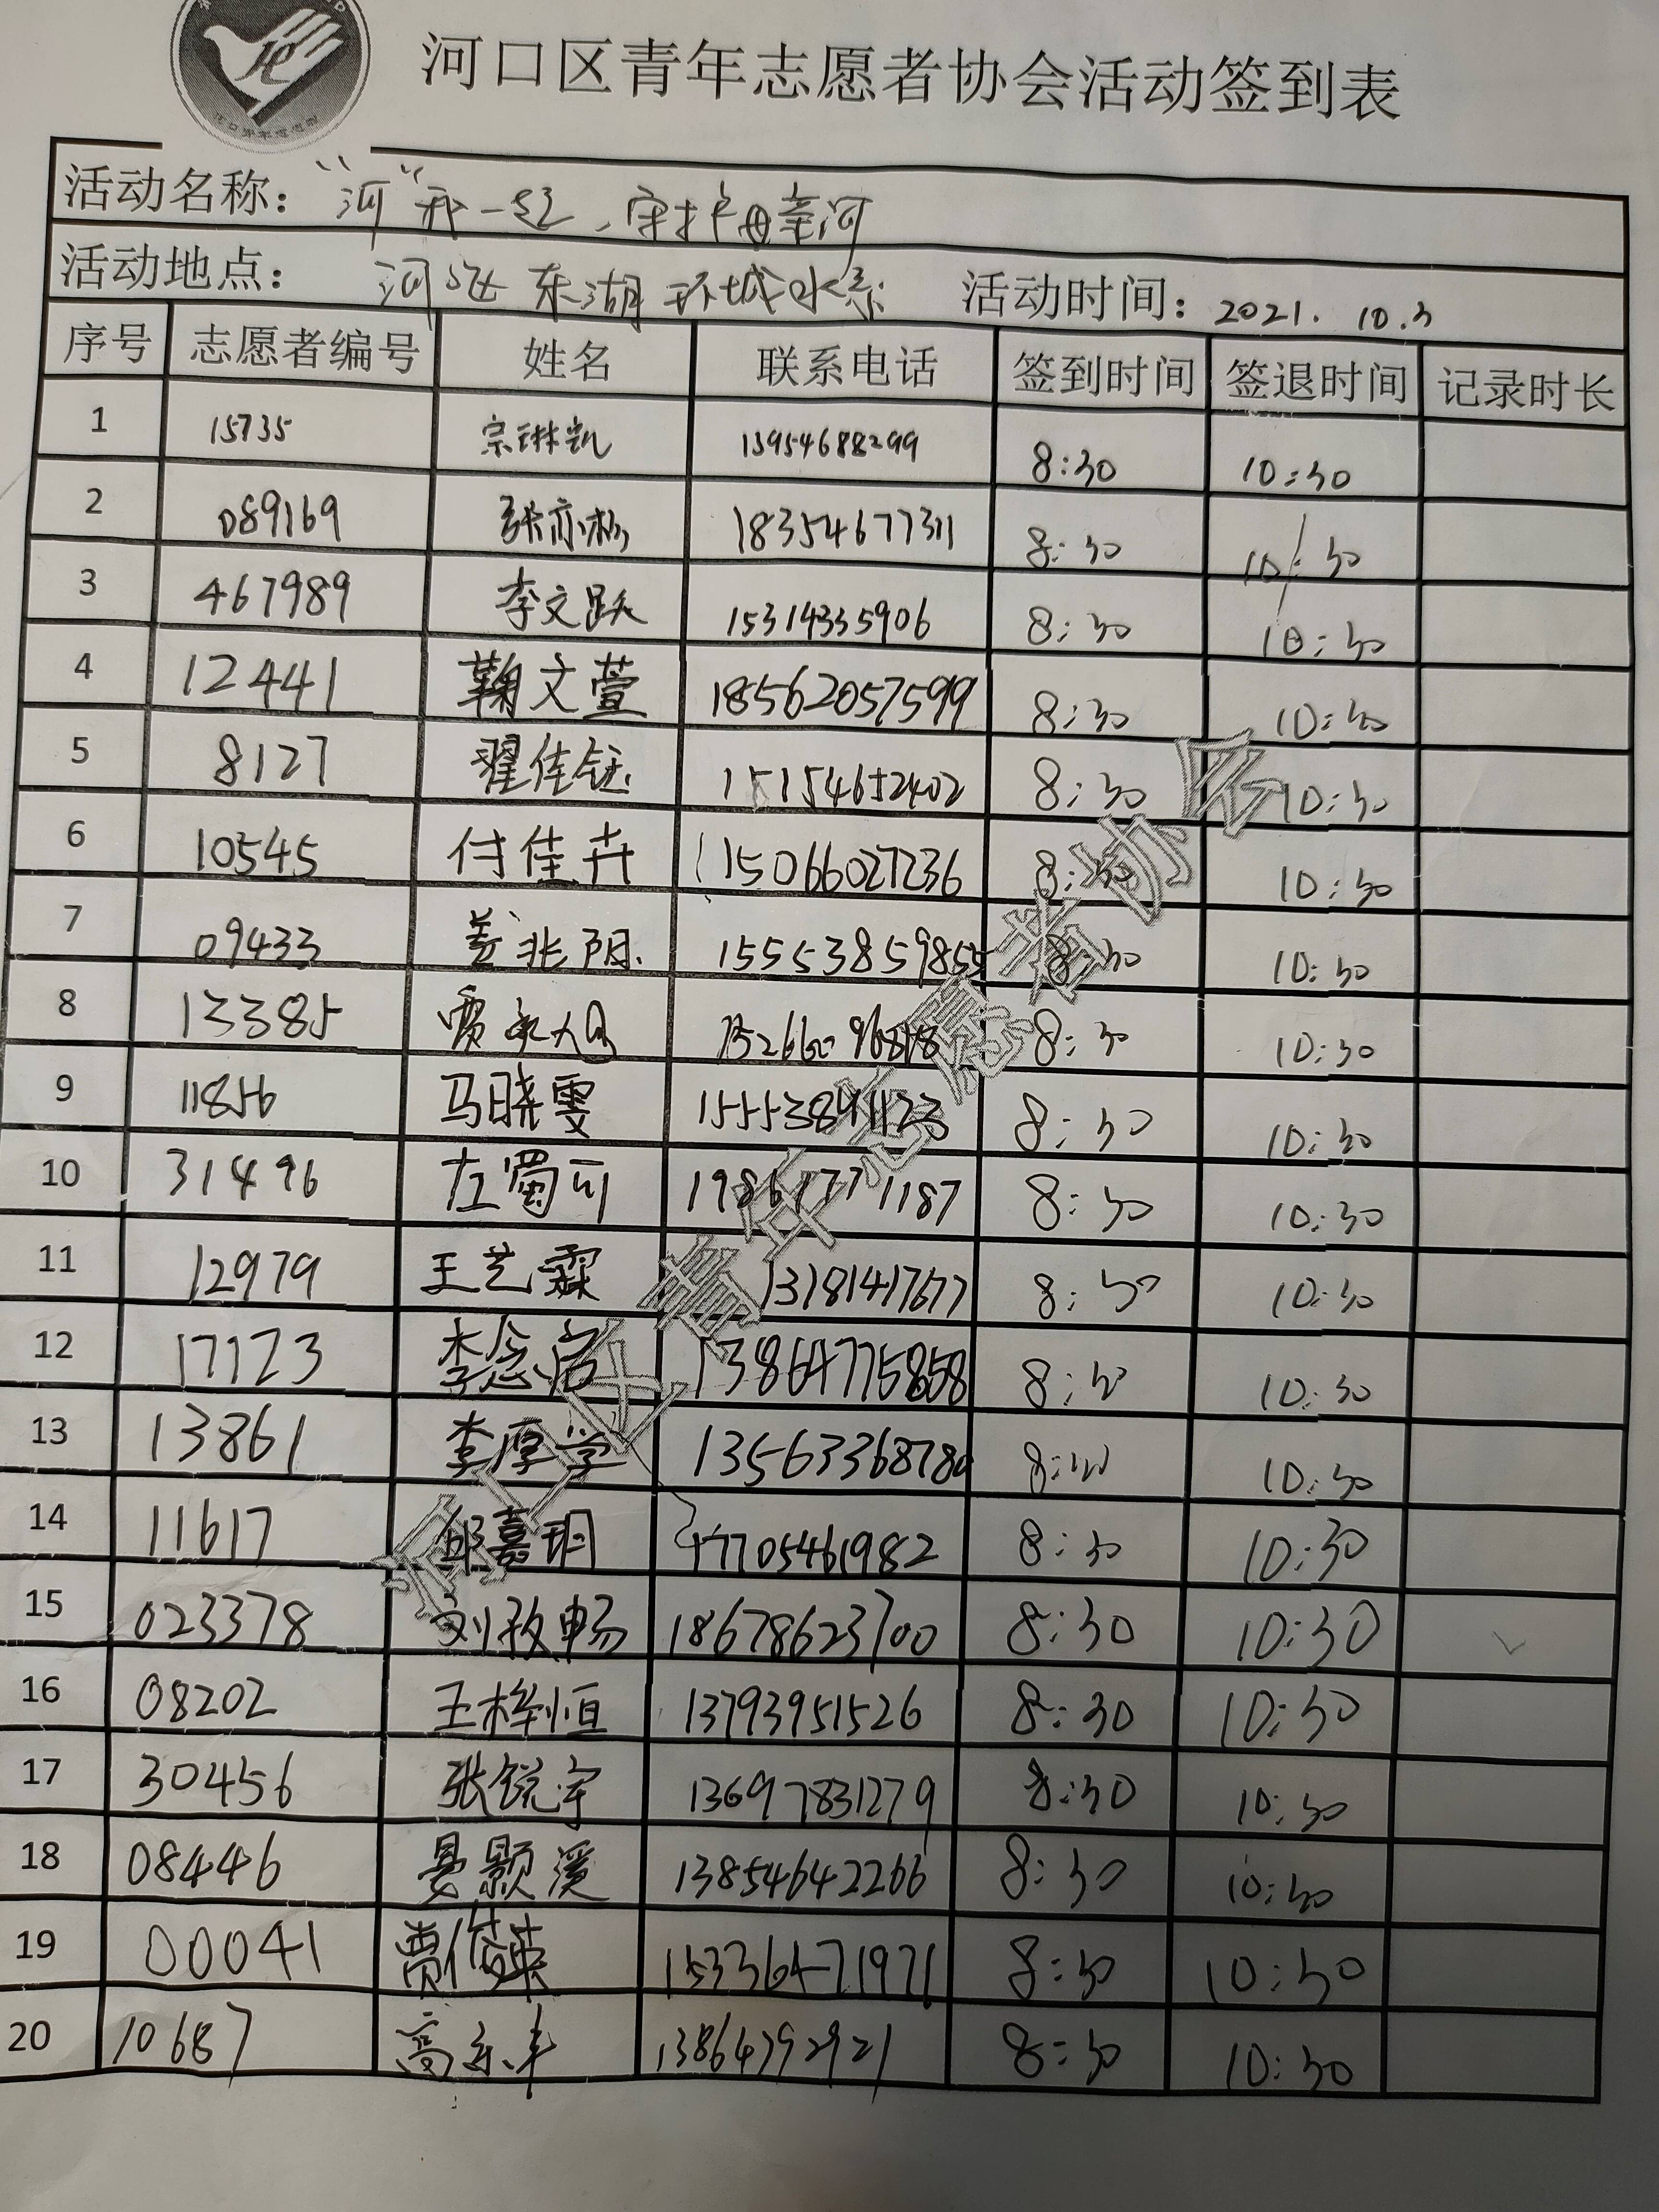 河口区青年志愿者协会活动签到表
活动名称：“河”我一起、守护母亲河
活动地点： 河口区东湖环城水系 活动时间：2021. 10.3
序号 志愿者编号 姓名 联系电话 签到时间 签退时间 记录时长
1 15735 宗琳凯 13954688299 8:30 10:30
2 089169 18354677311 8:30 10:30
3 467989 李文跃 15314335906 8:30 10:30
4 12441 鞠文萱 18562057599 8:30 10:30
5 8127 翟佳钰 15154652402 8:30 10:30
6 10545 付佳卉 15066027236 8:30 10:30
7 09433 姜兆阳 8:30 10:30
8 13385 8:30 10:30
9 11856 马晓雯 15553841123 8:30 10:30
10 31496 左蜀可 19861771187 8:30 10:30
11 12979 王艺霖 13181417677 8:30 10:30
12 17123 李念启 13864775858 8:30 10:30
13 13861 李厚学 13563368780 8:30 10:30
14 11617 邱嘉玥 17705461982 8:30 10:30
15 023378 刘孜畅 18678623700 8:30 10:30
16 08202 王梓恒 13793951526 8:30 10:30
17 30456 张锐宇 13697831279 8:30 10:30
18 08446 晏颢溪 13854642266 8:30 10:30
19 00041 贾俊英 15336471971 8:30 10:30
20 10687 13864792921 8:30 10:30
河口区青年志愿者协会